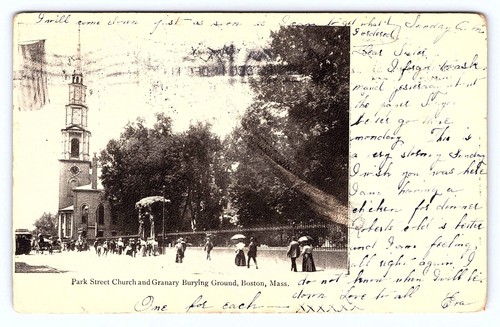 I will come down just as soon as I can to get what
I ordered.
Sunday
Dear Sister
I forgot to ask
mand yesterday about
the
go till
monday. This is
a very stormy Sunday
I wish you was here
I am having a
chicken for dinner
cold is better
and I am feeling
all right again. I
do not know when I will be
down Love to all
One for each
Park Street Church and Granary Burying Ground, Boston, Mass.